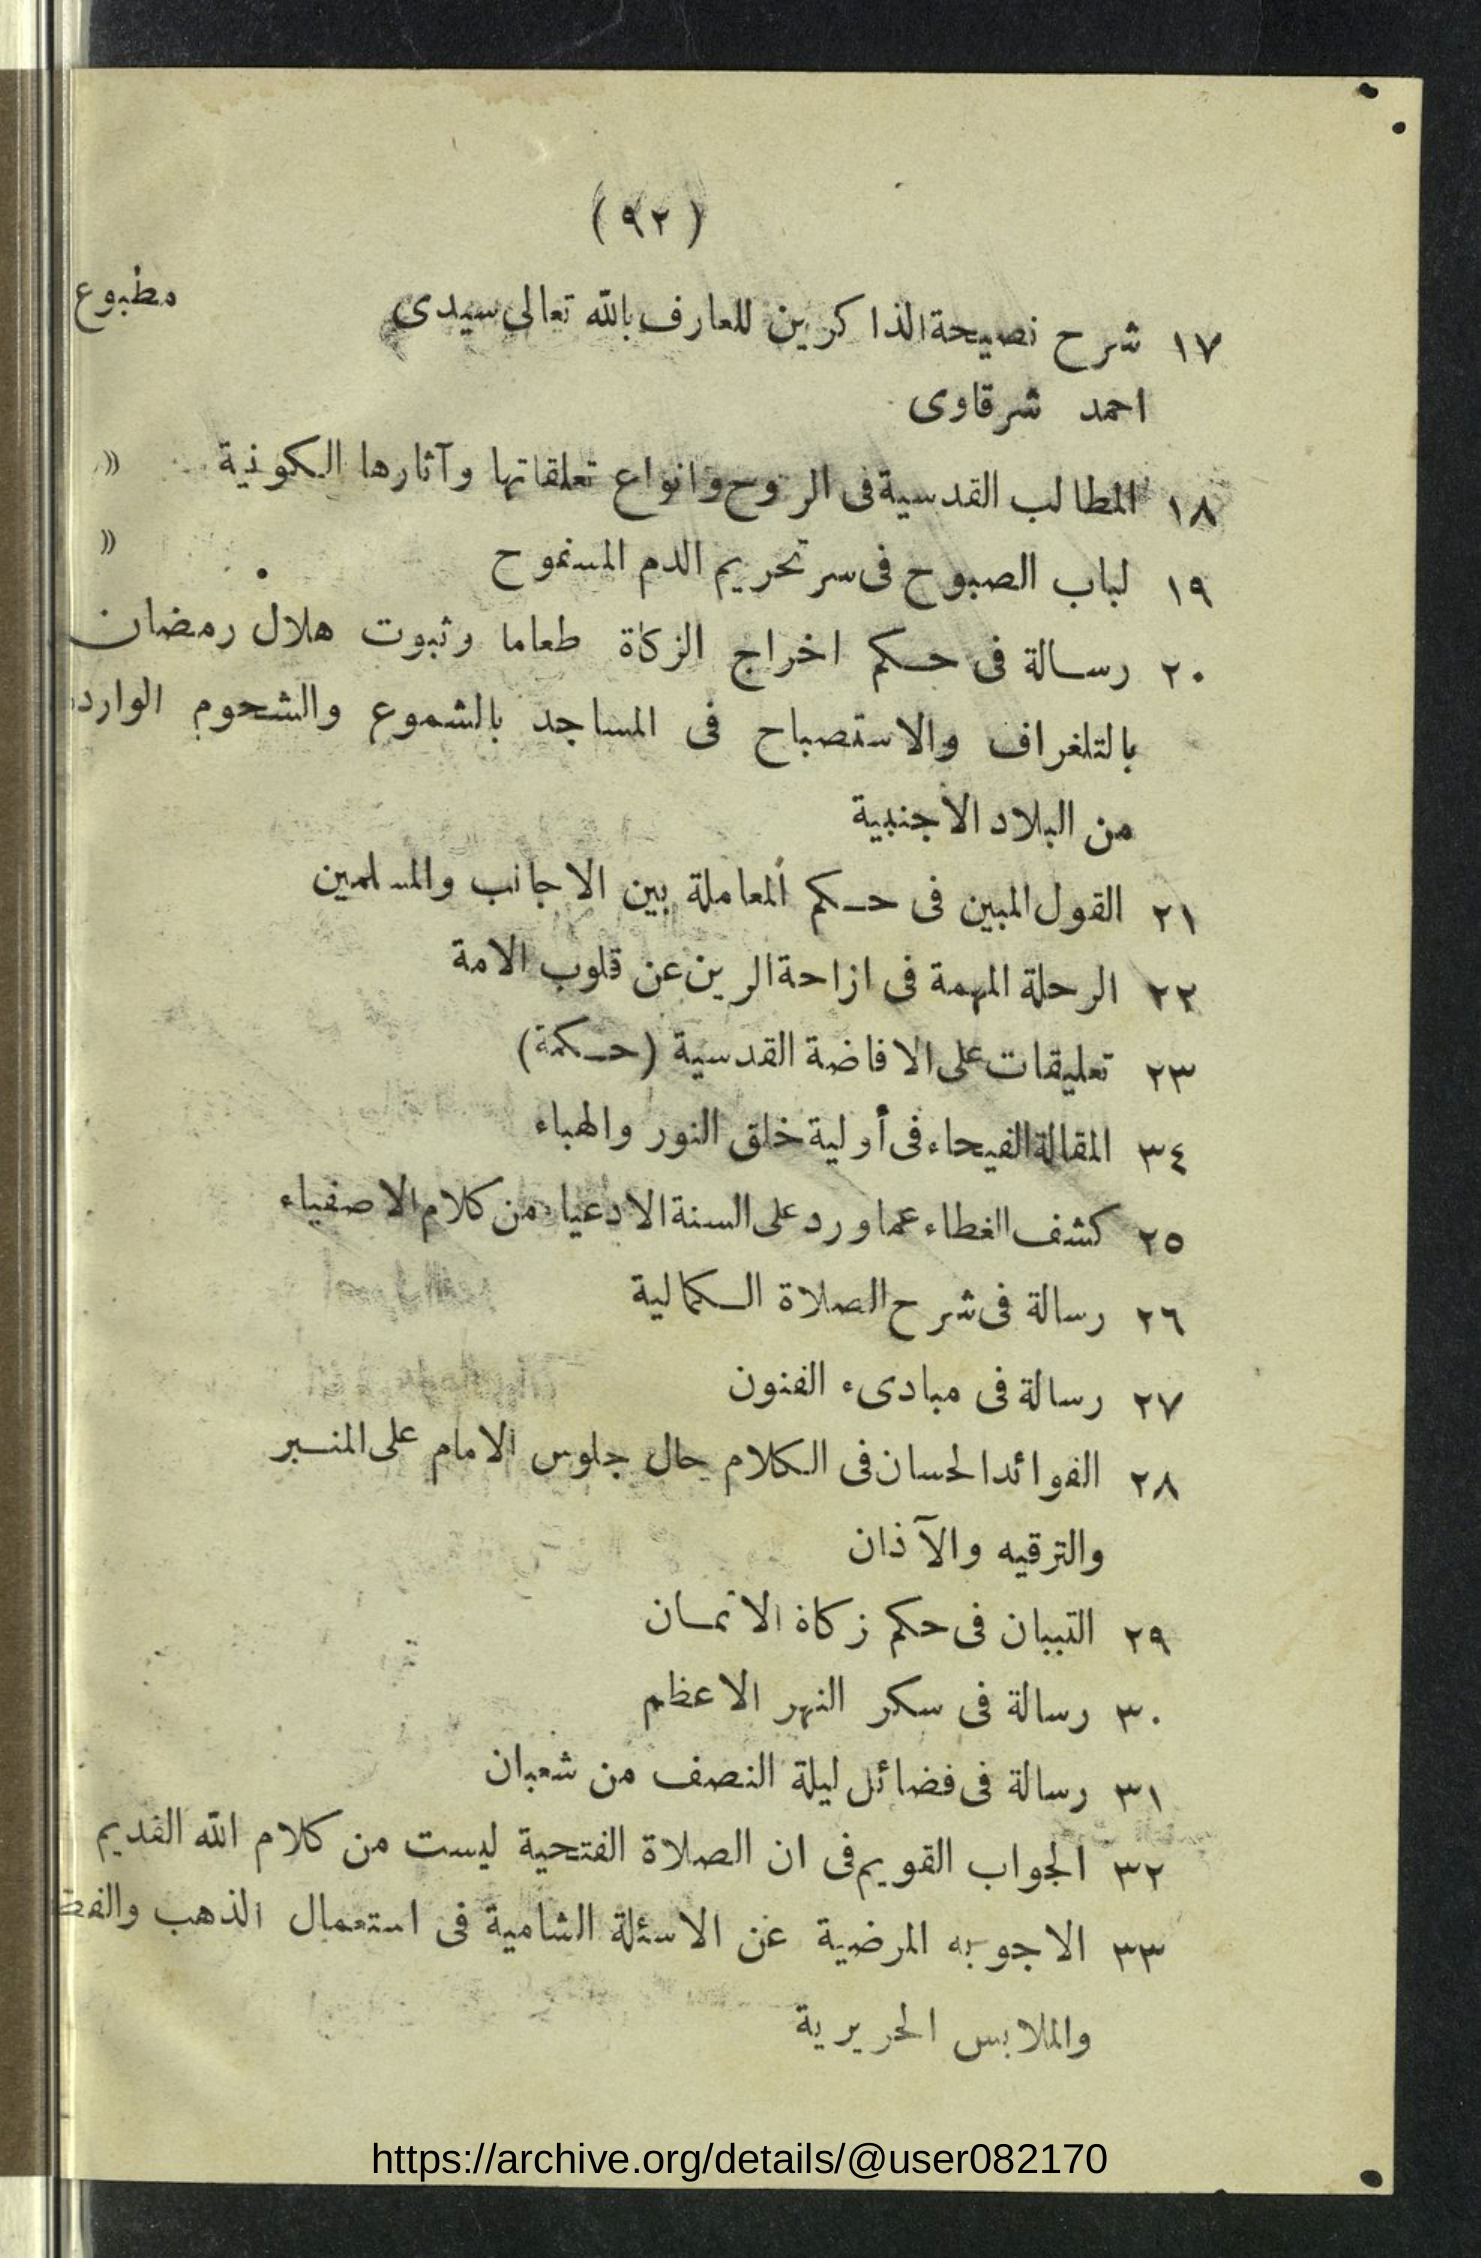 ( ٩٢ )
١٧ شرح نصيحة الذاكرين للعارف بالله تعالى سيدى مطبوع
احمد شرقاوى
١٨ المطالب القدسية فى الروح وانواع تعلقاتها وآثارها الكونية «
١٩ لباب الصبوح فى سر تحريم الدم المسفوح «
٢٠ رسالة فى حكم اخراج الزكاة طعاما وثبوت هلال رمضان
بالتلغراف والاستصباح فى المساجد بالشموع والشحوم
من البلاد الاجنبية
٢١ القول المبين فى حكم المعاملة بين الاجانب والمسلمين
٢٢ الرحلة المهمة فى ازاحة الرين عن قلوب الامة
٢٣ تعليقات على الافاضة القدسية (حكمة)
٣٤ المقالة الفيحاء فى أولية خلق النور والهباء
٢٥ كشف الغطاء عما ورد على السنة الادعياء من كلام الاصفياء
٢٦ رسالة فى شرح الصلاة الكمالية
٢٧ رسالة فى مبادىء الفنون
٢٨ الفوائد الحسان فى الكلام حال جلوس الامام على المنبر
والترقيه والآذان
٢٩ التبيان فى حكم زكاة الاثمان
٣٠ رسالة فى سكر النهر الاعظم
٣١ رسالة فى فضائل ليلة النصف من شعبان
٣٢ الجواب القويم فى ان الصلاة الفتحية ليست من كلام الله القديم
٣٣ الاجوبه المرضية عن الاسئلة الشامية فى استعمال الذهب
والملابس الحريرية
https://archive.org/details/@user082170